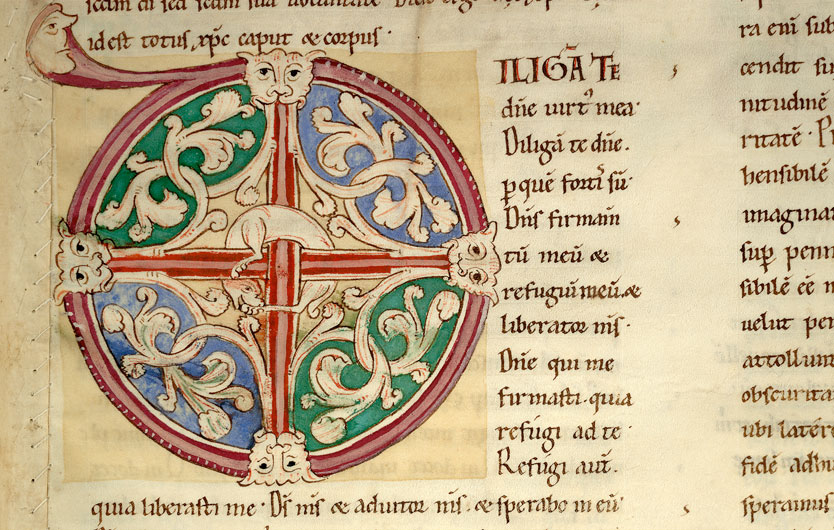 id est totus, xp̄c caput & corpus·
ILIGĀ TE
dn̄e uirt᷒ mea·
Diligā te dn̄e·
ꝑquē fortꝭ sū·
Dn̄s firmam̄
tū meū &
refugiū meū. &
liberator nr̄s·
Dn̄e qui me
firmasti· quia
refugi ad te·
Refugi aut̄.
quia liberasti me· Ds̄ nr̄s & adiutor nr̄s· & sperabo in eū·
ra enī sub
cendit sup
nitudinē
ritatē·
hensibilē
imaginar
suꝑ penn
sibilē eē
uelut pen
attollunt
obscuritat
ubi latere
fidē adhu
speramus